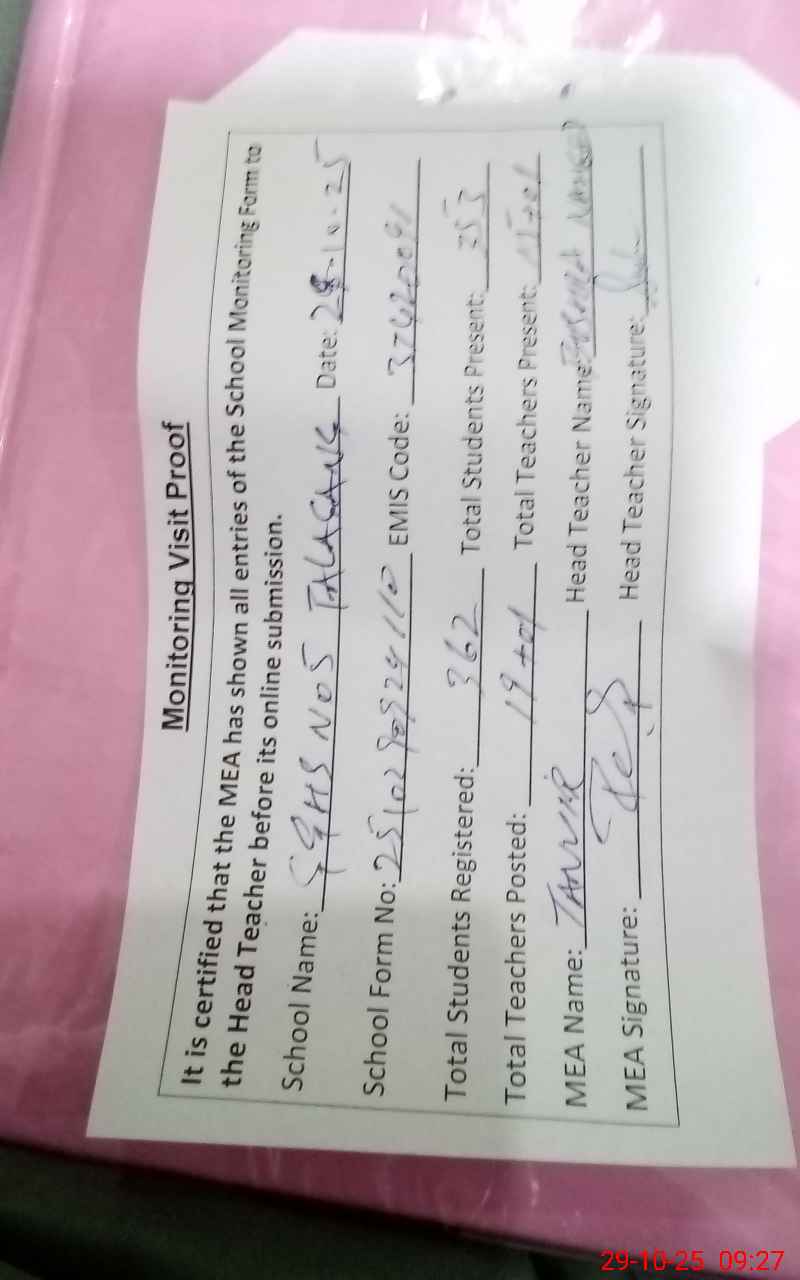 Monitoring Visit Proof
It is certified that the MEA has shown all entries of the School Monitoring Form to
the Head Teacher before its online submission.
School Name: GGHS NO5 TALAGANG Date: 29-10-25
School Form No: EMIS Code: 37420091
Total Students Registered: 362 Total Students Present: 353
Total Teachers Posted: 19+01 Total Teachers Present:
MEA Name: TANVIR Head Teacher Name:
MEA Signature: Head Teacher Signature:
29-10-25 09:27